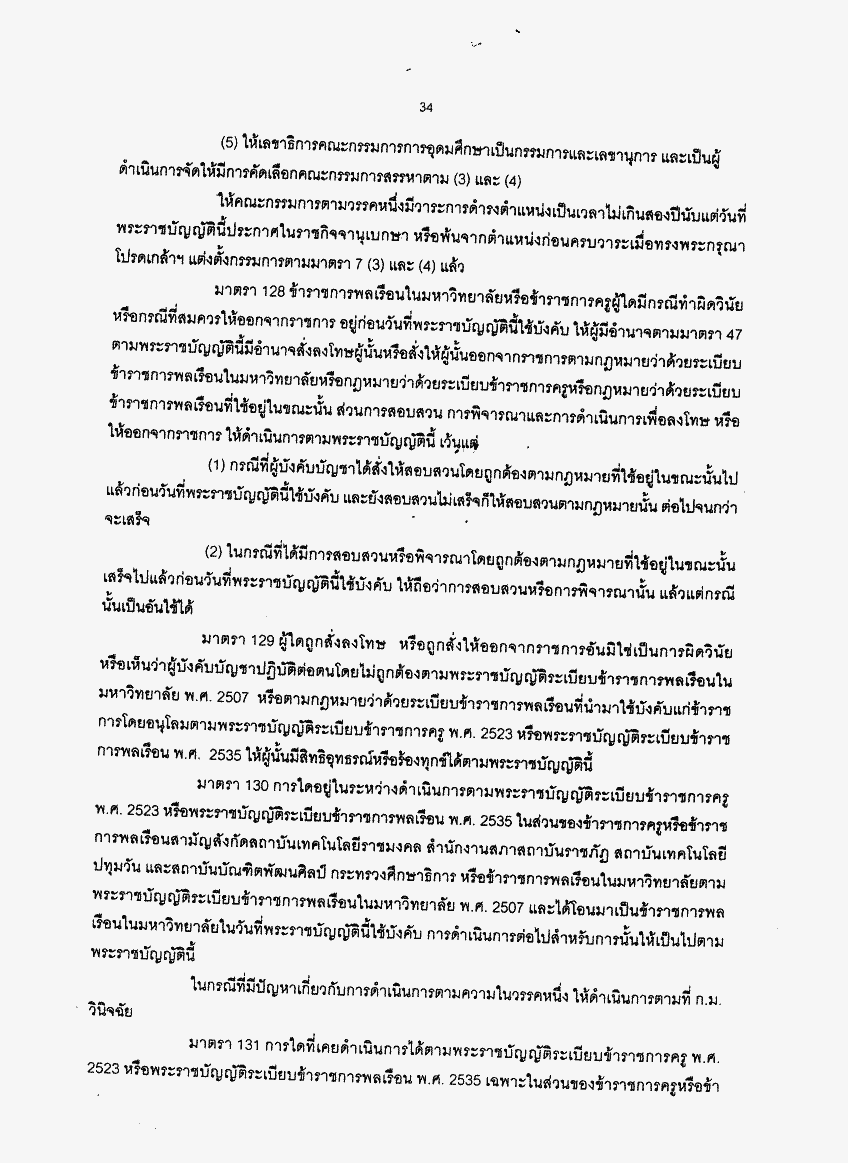 34
(5) ให้เลขาธิการคณะกรรมการการอุดมศึกษาเป็นกรรมการและเลขานุการ และเป็นผู้
ดำเนินการจัดให้มีการคัดเลือกคณะกรรมการสรรหาตาม (3) และ (4)
ให้คณะกรรมการตามวรรคหนึ่งมีวาระการดำรงตำแหน่งเป็นเวลาไม่เกินสองปีนับแต่วันที่
พระราชบัญญัตินี้ประกาศในราชกิจจานุเบกษา หรือพ้นจากตำแหน่งก่อนครบวาระเมื่อทรงพระกรุณา
โปรดเกล้าฯ แต่งตั้งกรรมการตามมาตรา 7 (3) และ (4) แล้ว
มาตรา 128 ข้าราชการพลเรือนในมหาวิทยาลัยหรือข้าราชการครูผู้ใดมีกรณีทำผิดวินัย
หรือกรณีที่สมควรให้ออกจากราชการ อยู่ก่อนวันที่พระราชบัญญัตินี้ใช้บังคับ ให้ผู้มีอำนาจตามมาตรา 47
ตามพระราชบัญญัตินี้มีอำนาจสั่งลงโทษผู้นั้นหรือสั่งให้ผู้นั้นออกจากราชการตามกฎหมายว่าด้วยระเบียบ
ข้าราชการพลเรือนในมหาวิทยาลัยหรือกฎหมายว่าด้วยระเบียบข้าราชการครูหรือกฎหมายว่าด้วยระเบียบ
ข้าราชการพลเรือนที่ใช้อยู่ในขณะนั้น ส่วนการสอบสวน การพิจารณาและการดำเนินการเพื่อลงโทษ หรือ
ให้ออกจากราชการ ให้ดำเนินการตามพระราชบัญญัตินี้ เว้นแต่
(1) กรณีที่ผู้บังคับบัญชาได้สั่งให้สอบสวนโดยถูกต้องตามกฎหมายที่ใช้อยู่ในขณะนั้นไป
แล้วก่อนวันที่พระราชบัญญัตินี้ใช้บังคับ และยังสอบสวนไม่เสร็จก็ให้สอบสวนตามกฎหมายนั้น ต่อไปจนกว่า
จะเสร็จ
(2) ในกรณีที่ได้มีการสอบสวนหรือพิจารณาโดยถูกต้องตามกฎหมายที่ใช้อยู่ในขณะนั้น
เสร็จไปแล้วก่อนวันที่พระราชบัญญัตินี้ใช้บังคับ ให้ถือว่าการสอบสวนหรือการพิจารณานั้น แล้วแต่กรณี
นั้นเป็นอันใช้ได้
มาตรา 129 ผู้ใดถูกสั่งลงโทษ หรือถูกสั่งให้ออกจากราชการอันมิใช่เป็นการผิดวินัย
หรือเห็นว่าผู้บังคับบัญชาปฏิบัติต่อตนโดยไม่ถูกต้องตามพระราชบัญญัติระเบียบข้าราชการพลเรือนใน
มหาวิทยาลัย พ.ศ. 2507 หรือตามกฎหมายว่าด้วยระเบียบข้าราชการพลเรือนที่นำมาใช้บังคับแก่ข้าราช
การโดยอนุโลมตามพระราชบัญญัติระเบียบข้าราชการครู พ.ศ. 2523 หรือพระราชบัญญัติระเบียบข้าราช
การพลเรือน พ.ศ. 2535 ให้ผู้นั้นมีสิทธิอุทธรณ์หรือร้องทุกข์ได้ตามพระราชบัญญัตินี้
มาตรา 130 การใดอยู่ในระหว่างดำเนินการตามพระราชบัญญัติระเบียบข้าราชการครู
พ.ศ. 2523 หรือพระราชบัญญัติระเบียบข้าราชการพลเรือน พ.ศ. 2535 ในส่วนของข้าราชการครูหรือข้าราช
การพลเรือนสามัญสังกัดสถาบันเทคโนโลยีราชมงคล สำนักงานสภาสถาบันราชภัฏ สถาบันเทคโนโลยี
ปทุมวัน และสถาบันบัณฑิตพัฒนศิลป์ กระทรวงศึกษาธิการ หรือข้าราชการพลเรือนในมหาวิทยาลัยตาม
พระราชบัญญัติระเบียบข้าราชการพลเรือนในมหาวิทยาลัย พ.ศ. 2507 และได้โอนมาเป็นข้าราชการพล
เรือนในมหาวิทยาลัยในวันที่พระราชบัญญัตินี้ใช้บังคับ การดำเนินการต่อไปสำหรับการนั้นให้เป็นไปตาม
พระราชบัญญัตินี้
ในกรณีที่มีปัญหาเกี่ยวกับการดำเนินการตามความในวรรคหนึ่ง ให้ดำเนินการตามที่ ก.ม.
วินิจฉัย
มาตรา 131 การใดที่เคยดำเนินการได้ตามพระราชบัญญัติระเบียบข้าราชการครู พ.ศ.
2523 หรือพระราชบัญญัติระเบียบข้าราชการพลเรือน พ.ศ. 2535 เฉพาะในส่วนของข้าราชการครูหรือข้า